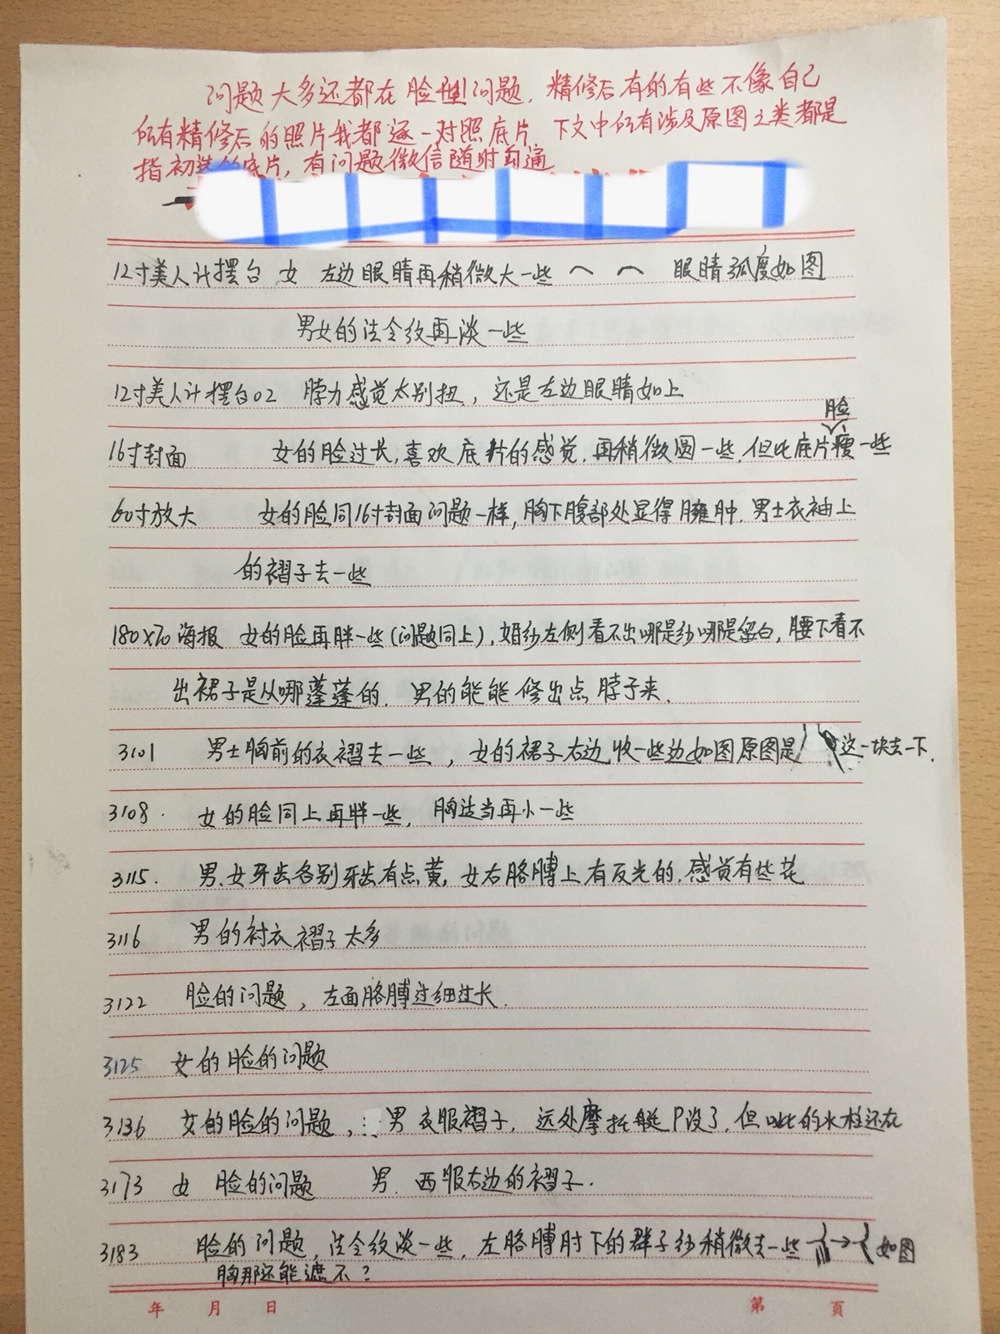 问题大多还都在脸型问题，精修后有的有些不像自己
所有精修后的照片我都逐一对照底片，下文中所有涉及原图之类都是
指初装的底片，有问题微信随时沟通
12寸美人计摆台 女 左边眼睛再稍微大一些 眼睛弧度如图
男女的法令纹再淡一些
12寸美人计摆台02 脖力感觉太别扭，还是左边眼睛如上
脸
16寸封面 女的脸过长，喜欢底片的感觉，再稍微圆一些，但比底片瘦一些
60寸放大 女的脸同16寸封面问题一样，胸下腹部处显得臃肿．男士衣袖上
的褶子去一些
180×70海报 女的脸再胖一些（问题同上），婚纱左侧看不出哪是纱哪是留白，腰下看不
出裙子是从哪蓬蓬的．男的能能修出点脖子来．
3101 男士胸前的衣褶去一些，女的裙子右边收一些边如图原图是 这一块去一下．
3108. 女的脸同上再胖一些，胸适当再小一些
3115. 男．女牙齿各别牙齿有点黄，女右胳膊上有反光的．感觉有些花
3116 男的衬衣褶子太多
3122 脸的问题，左面胳膊过细过长．
3125 女的脸的问题
3136 女的脸的问题，男 衣服褶子．远处摩托艇P没了．但 的水柱还在
3173 女 脸的问题 男．西服右边的褶子．
3183 脸的问题，法令纹淡一些．左胳膊肘下的群子纱稍微去一些 → 如图
胸那还能遮不？
年 月 日 第 頁